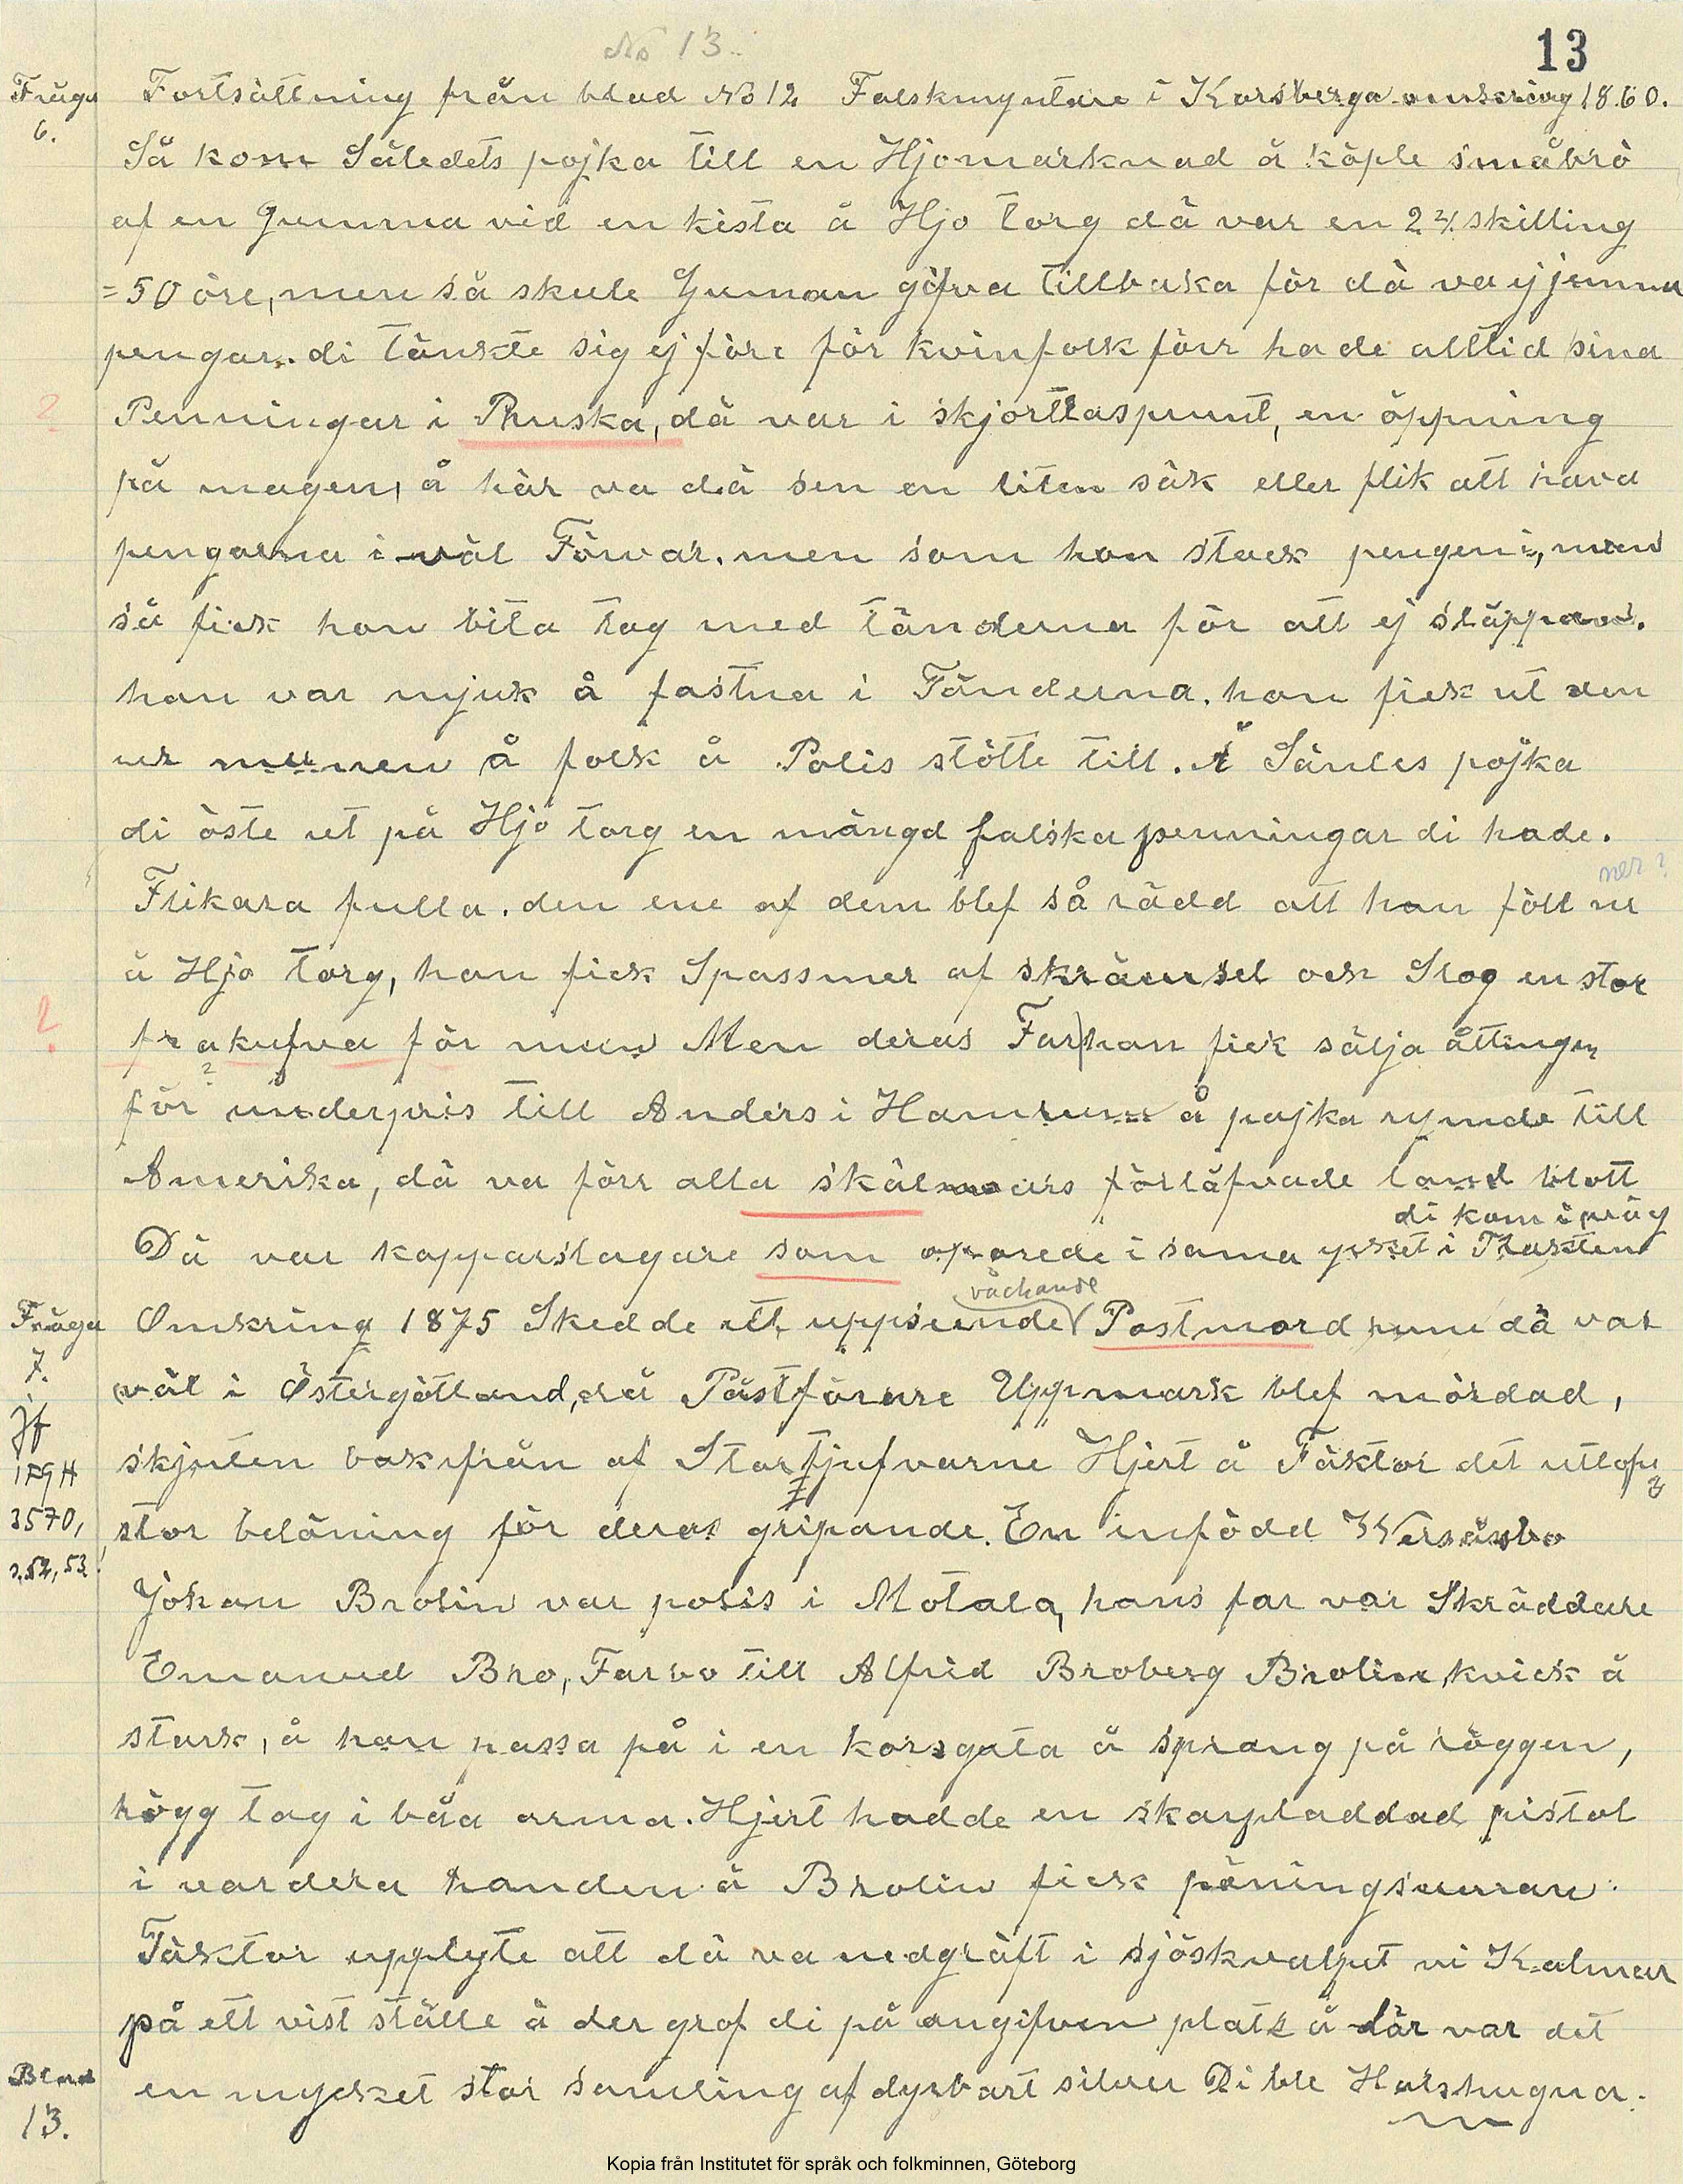 No 13.
13
Fråga
6.
Fortsättning från blad No 12 Falskmyntare i Korsberga omkring 1860.
Så kom Såledets pojka till en Hjomarknad å köpte småbrö
af en Gumma vid en kista å Hjo torg då var en 24 skilling
= 50 öre, men så skule Guman gifva tillbaka för då va ej jemna
pengar. di tänkte sig ej före för kvinfolk förr hade alltid sina
2
Penningar i Phuska, då var i skjorttaspunt, en öppning
på magen, å här va då sen en liten säk eller flik att hava
pengarna i väl Förvar. men som hon stack pengen i, men
så fick hon bita tag med tänderna för att ej släppan.
han var mjuk å fastna i Tänderna. hon fick ut den
ur munen å folk å Polis stötte till. Å Sånles pojka
di öste ut på Hjo torg en mängd falska penningar di hade.
ner?
Flikara fulla. den ene af dem blef så rädd att han föll ne
å Hjo torg, han fick Spassmer af skrämsel ock Slog en stor
2
frakufva för mun Men deras Far han fick sälja åttingen
?
för underpris till Anders i Hamrum å pojka rymde till
Amerika, då va förr alla skälmars förläfvade land blott
di kom iväg
Då var kopparslagare som oparede i sama yrket i Trakten
Fråga
7.
jf
IFGH
3570,
s.52, 53.
väckande
Omkring 1875 Skedde ett uppseende Postmord men då var
väl i Östergötland, då Påstförare Uppmark blef mördad,
skjuten bakifrån af Stortjufvarne Hjert å Täktor det utlofu
stor beläning för deras gripande. En infödd Wersåsbo
Johan Brolin var polis i Motala, hans far var Skräddare
Emanuel Bro, Farbo till Alfrid Broberg Brolin, kvick å
stark, å han passa på i en korsgata å sprang på röggen,
högg tag i båa arma. Hjert hadde en skarpladdad pistol
i vardera handen å Brolin fick päningsuman.
Täktor upplyte att då va nedgräft i sjöskvalpet vi Kalmar
på ett vist ställe å der grof di på angifven plats å där var det
en mycket stor samling af dyrbart silver Di ble Halshugna.
Blad
13.
Kopia från Institutet för språk och folkminnen, Göteborg